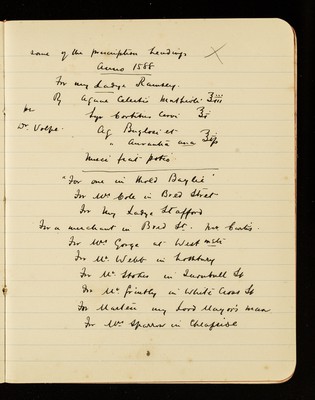 some of the prescription headings
Anno 1588
For my Ladye Ramsey.
Aquae Celestis Mathioli ℥iii
per Syr Corticus Citri ℥i
Dr. Volpe. Aq Buglossi et
" Aurantia ana
Misce fiat potio.
"For one in thold Baylie"
For Mr Cole in Bred Street
For my Ladye Stafford
For a merchant in Bred St. Mr Curtis.
For Mrs Gorge at West
For Mr Webb in Lothbury
For Mr Stokes in Turnbull St
For Mr Grimbly in White Cross St
For Martin my Lord Mayor's man
For Mrs Sparrow in Cheapside